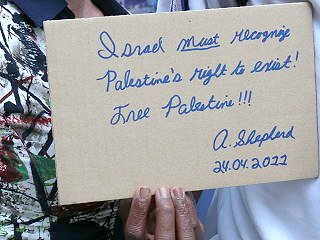 Israel must recognize
Palestine's right to exist!
Free Palestine!!!
A. Shepherd
24.04.2011